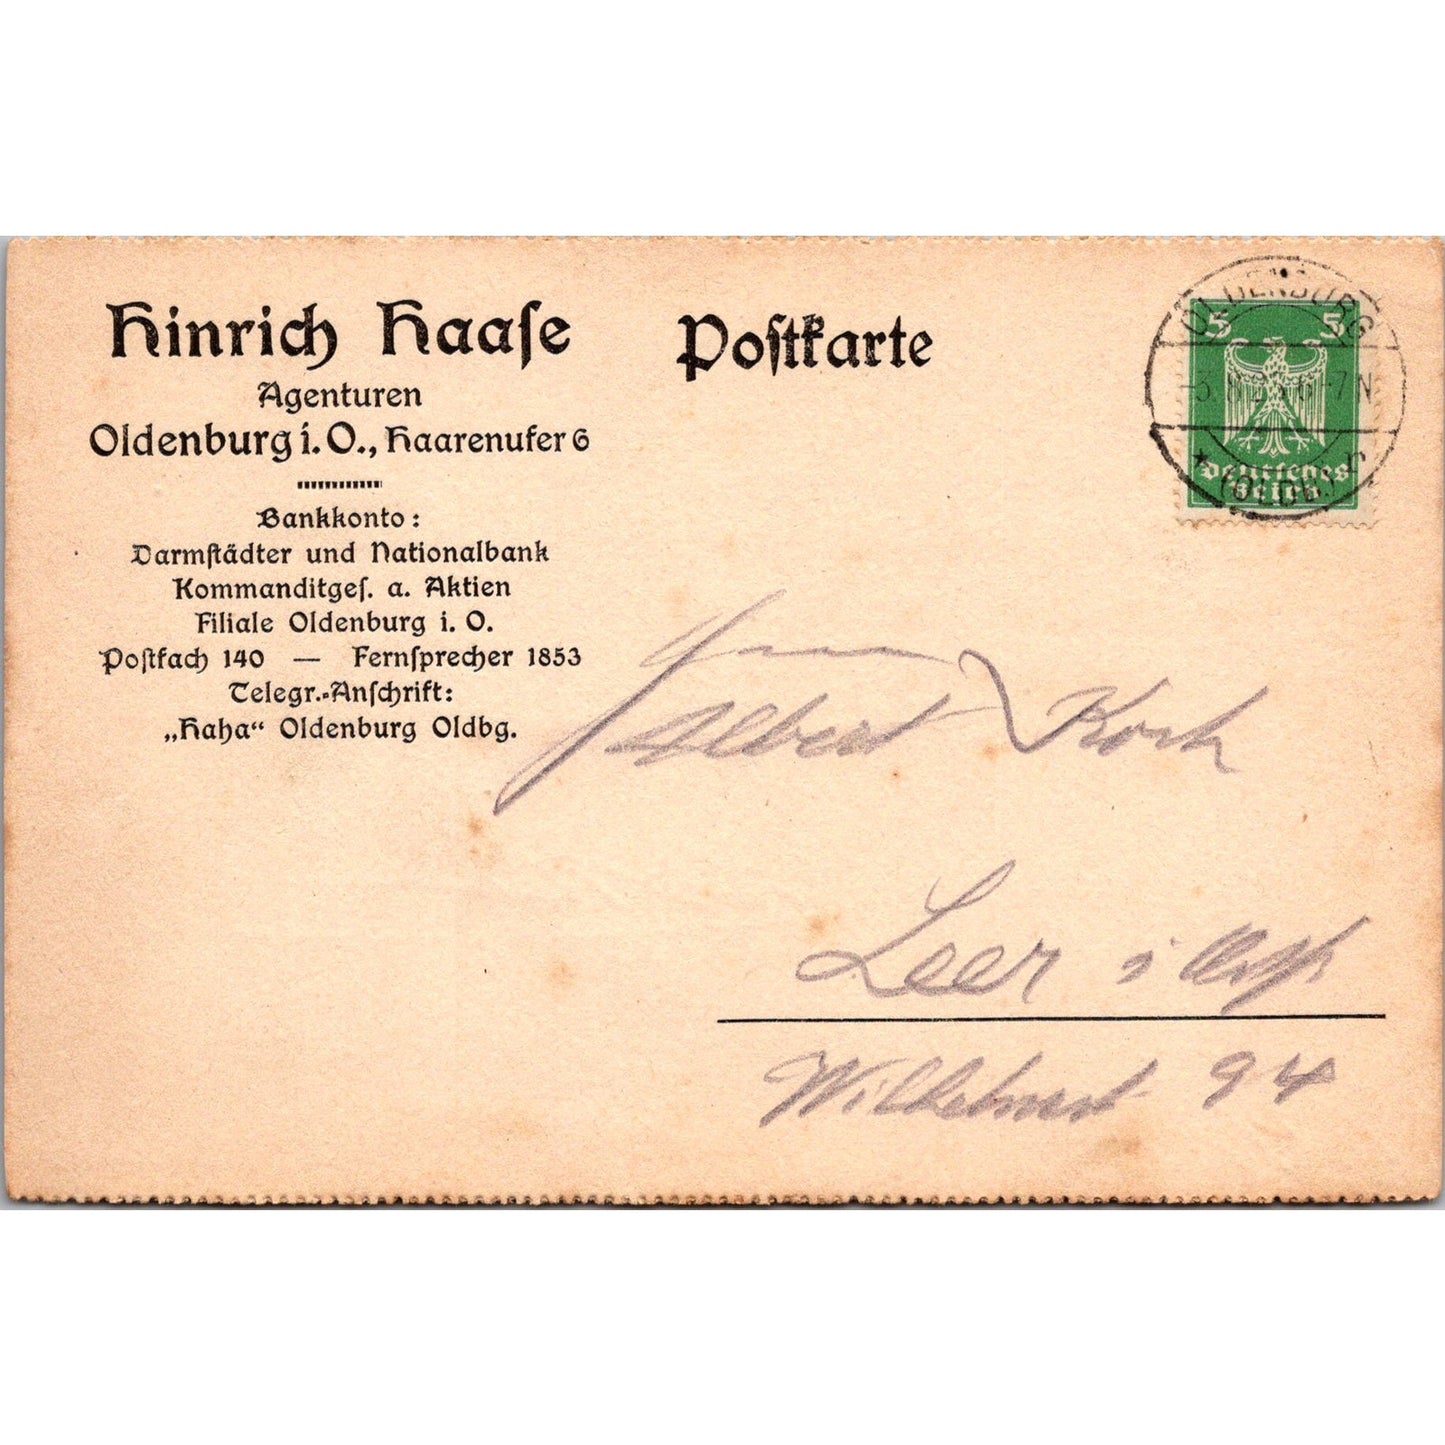 Hinrich Haaſe
Agenturen
Oldenburg i. O., Haarenufer 6
Bankkonto:
Darmſtädter und Nationalbank
Kommanditgeſ. a. Aktien
Filiale Oldenburg i. O.
Poſtfach 140 — Fernſprecher 1853
Telegr.-Anſchrift:
„Haha“ Oldenburg Oldbg.
Poſtkarte
OLDENBURG
6-7 N
(OLDB.)
5 5
Deutſches
Reich
Herrn
Albert Koch
Leer i
94